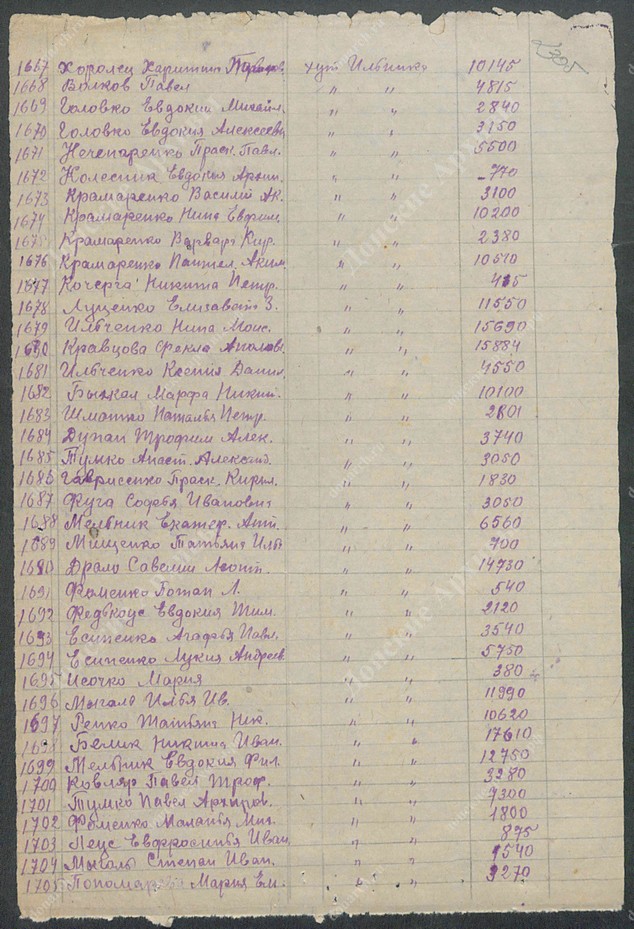 1305
1667 Хоролец Харитина хут Ильинка 10145
1668 Волков Павел " " 4815
1669 Головко Евдокия Михайл. " " 2840
1670 Головко Евдокия Алексеевн " " 3150
1671 Нечепаренко Праск. Павл. " " 5500
1672 Колесник Евдокия Архип. " " 770
1673 Крамаренко Василий Ак. " " 3100
1674 Крамаренко Нина Ефрим. " " 10200
1675 Крамаренко Варвара Кир. " " 2380
1676 Крамаренко Пантел. Аким. " " 10510
1677 Кочерга Никита Петр. " " 415
1678 Луценко Елизавета З. " " 11550
1679 Ильченко Нина Моис. " " 15690
1680 Кравцова Фекла Аполов. " " 15884
1681 Ильченко Ксения Данил. " " 4550
1682 Марфа Никит. " " 10100
1683 Шматко Наталья Петр. " " 2801
1684 Дупан Трофим Алек. " " 3740
1685 Тумко Анаст. Александ. " " 3050
1686 Гаврисенко Праск. Кирил. " " 1830
1687 Фуга Софья Ивановна " " 3050
1688 Мельник Екатер. Ант. " " 6560
1689 Мищенко Татьяна Иль " " 700
1690 Драло Савелий Леонт. " " 14730
1691 Фоменко Потап Л. " " 540
1692 Федькоус Евдокия Тим. " " 2120
1693 Есипенко Агафья Павл. " " 3540
1694 Есипенко Лукия Андреев " " 5750
1695 Исочко Мария " " 380
1696 Мыгаль Илья Ив. " " 11990
1697 Репко Татьяна Ник. " " 10620
1698 Белик Никита Иван. " " 17610
1699 Мельник Евдокия Фил. " " 12750
1700 Ковляр Павел Троф. " " 3280
1701 Тумко Павел Архипов. " " 9300
1702 Фоменко Маланья Мих. " " 1800
1703 Леус Евфросинья Иван " " 875
1704 Мыгаль Степан Иван. " " 1540
1705 Пономарева Мария Ем. " " 3270